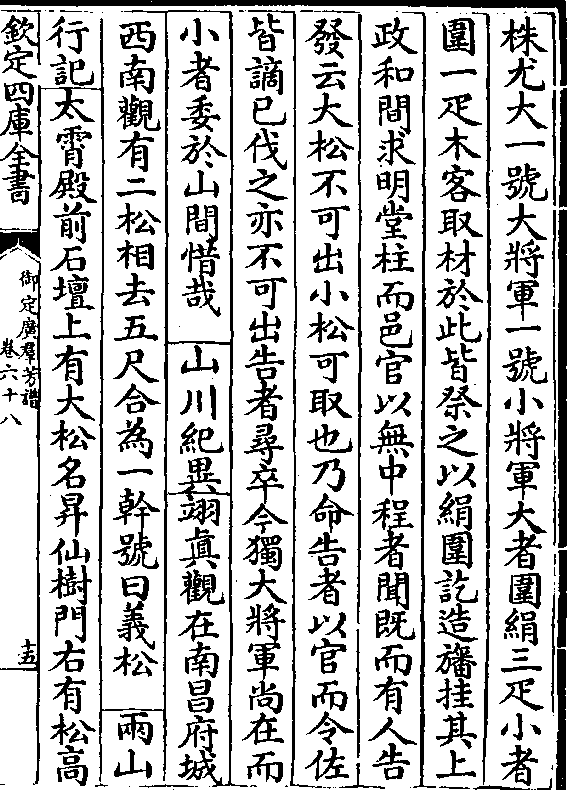 株尤大一號大將軍一號小將軍大者圍絹三疋小者
圍一疋木客取材於此皆祭之以絹圍訖造旛挂其上
政和間求明堂柱而邑官以無中程者聞既而有人告
發云大松不可出小松可取也乃命告者以官而令佐
皆謫已伐之亦不可出告者尋卒今獨大將軍尚在而
小者委於山間惜哉 山川紀異翊真觀在南昌府城
西南觀有二松相去五尺合為一幹號曰義松 兩山
行記太霄殿前石壇上有大松名昇仙樹門右有松高
欽定四庫全書
御定廣羣芳譜
卷六十八
十五